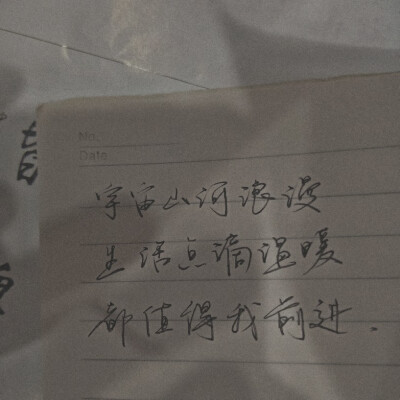 No.
Date
宇宙山河浪漫
生活点滴温暖
都值得我前进.